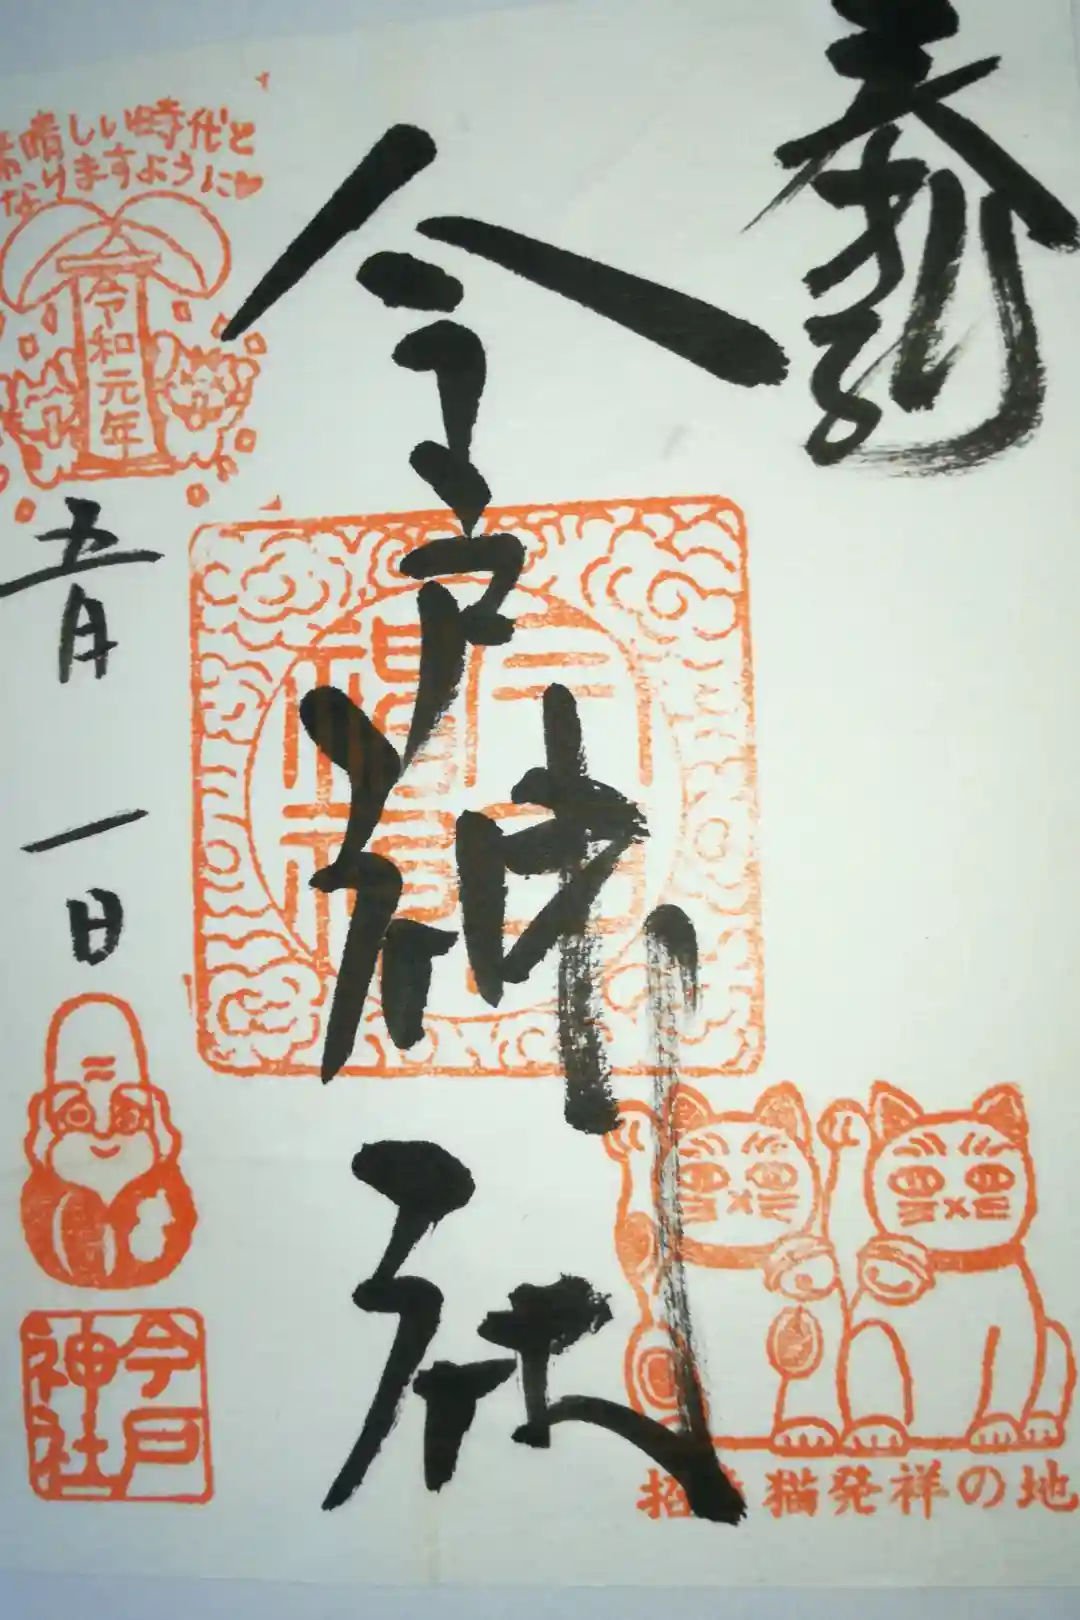 奉拝
今戸神社
素晴しい時代と
なりますように
令和元年
五月一日
今戸
神社
招き猫発祥の地